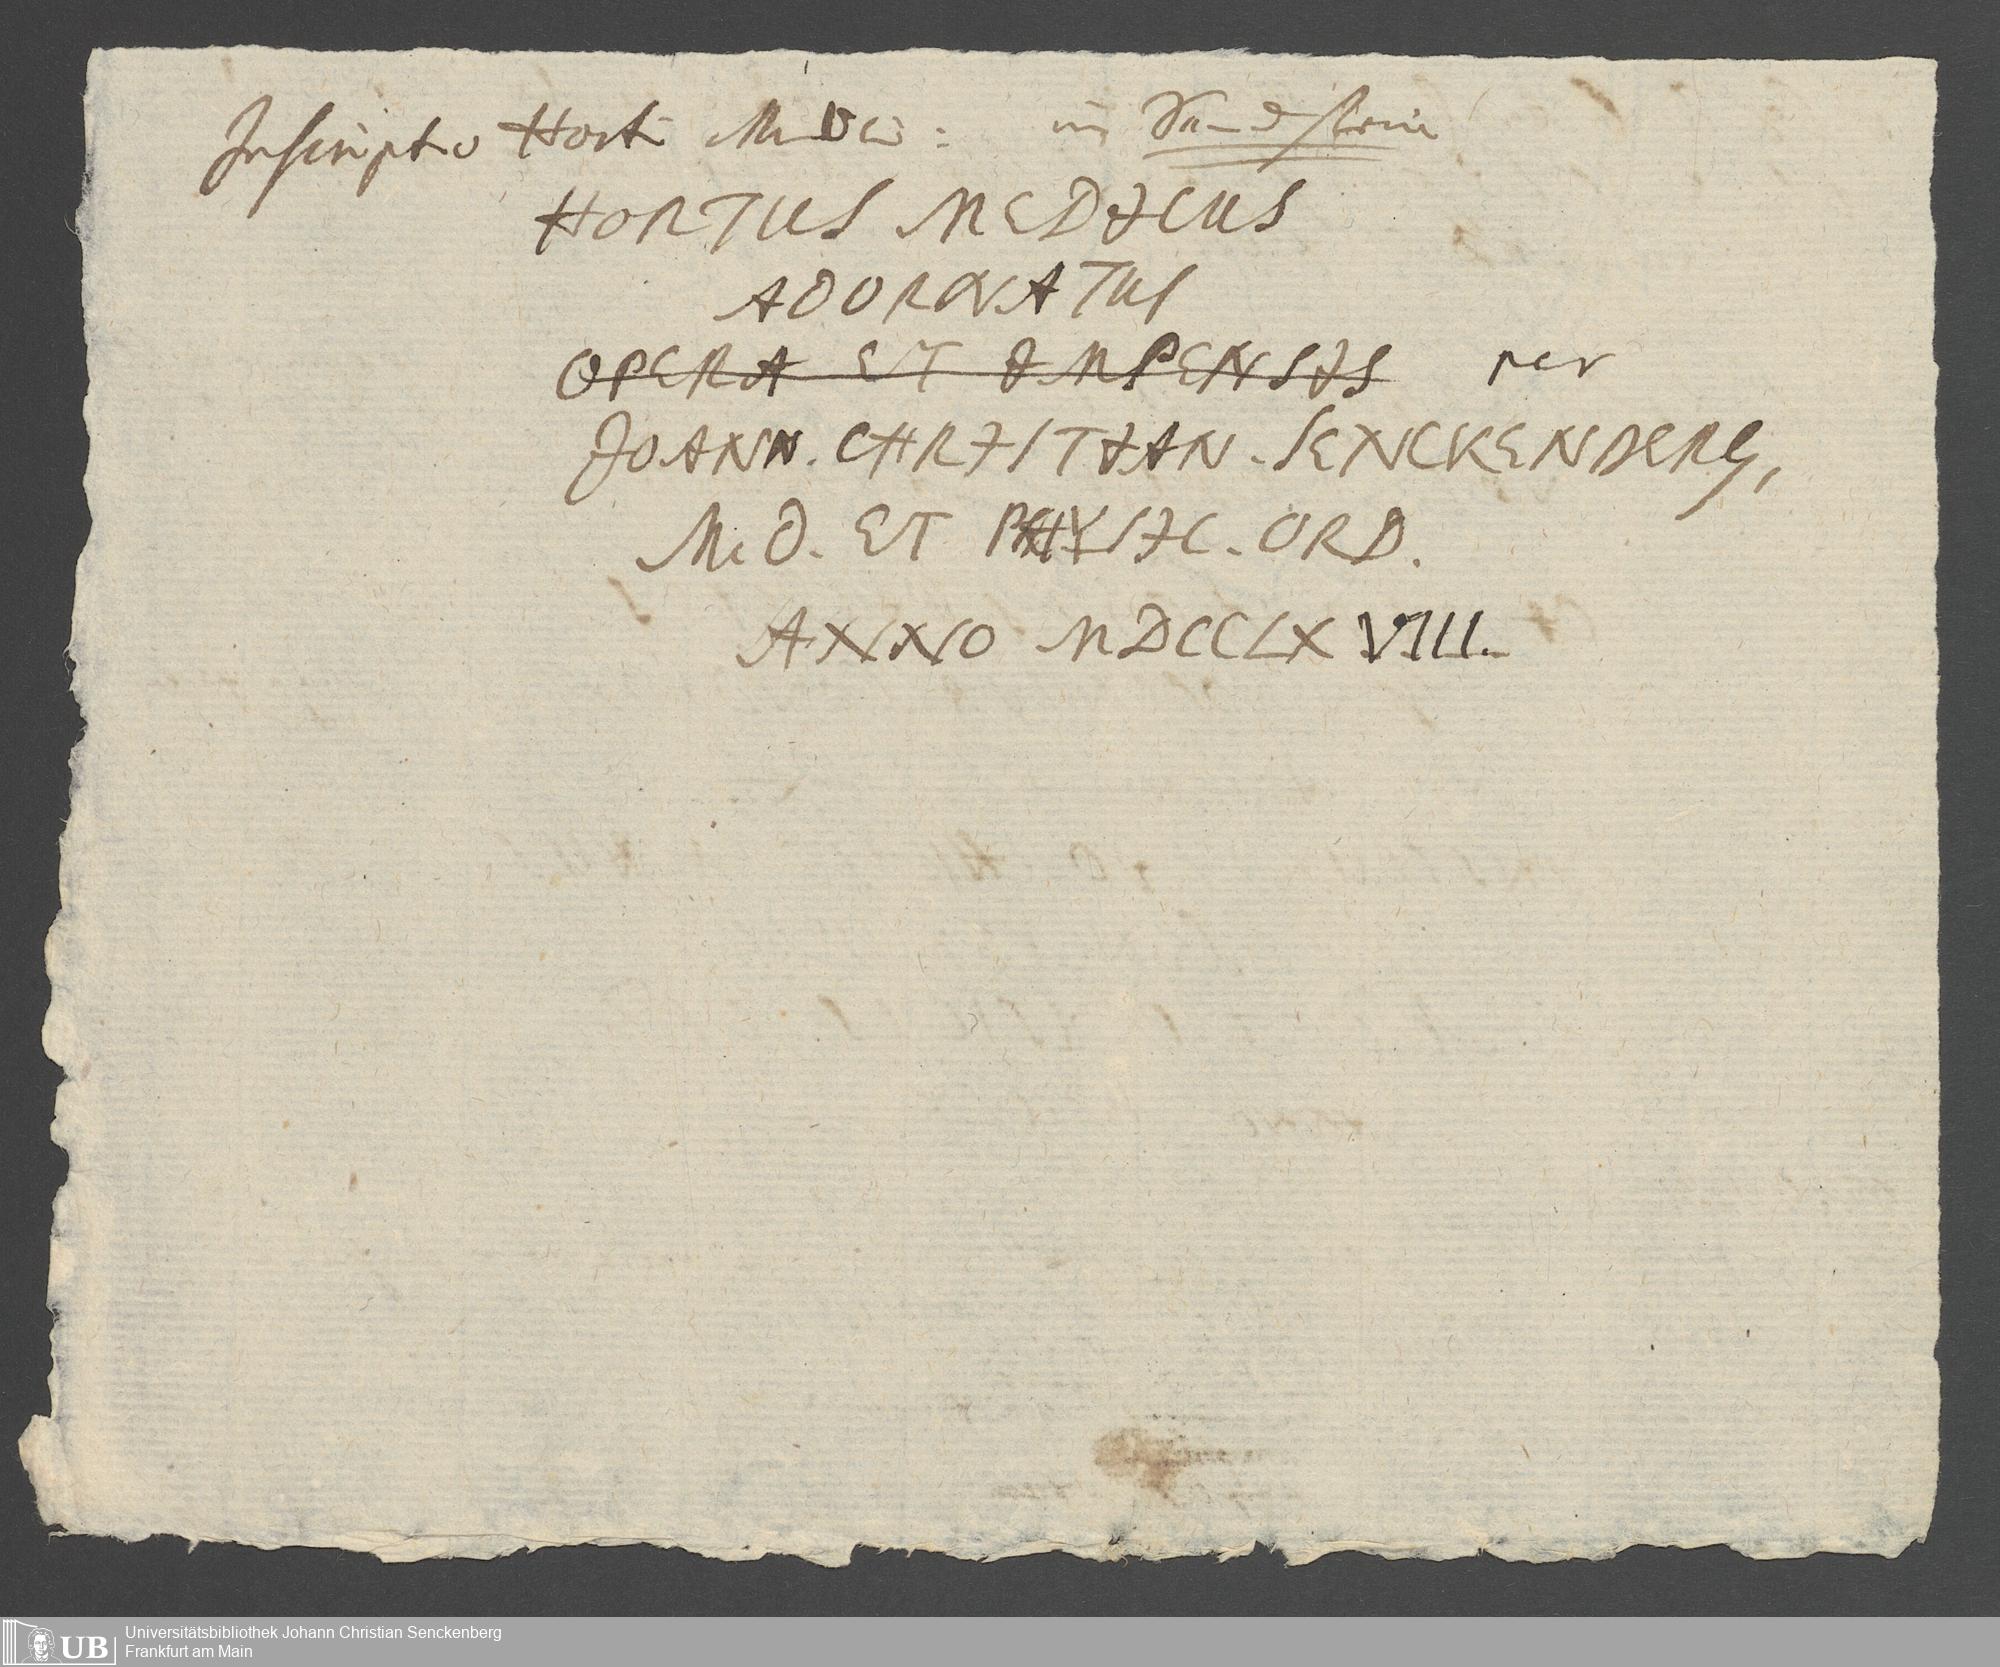 Inscriptio Horti Medici: in Sandstein
HORTUS MEDICUS
ADORNATUS
OPERA ET IMPENSIS per
JOANN. CHRISTIAN. SENCKENBERG,
M. D. ET PHYSIC. ORD.
ANNO MDCCLXVIII.
UB Universitätsbibliothek Johann Christian Senckenberg
Frankfurt am Main